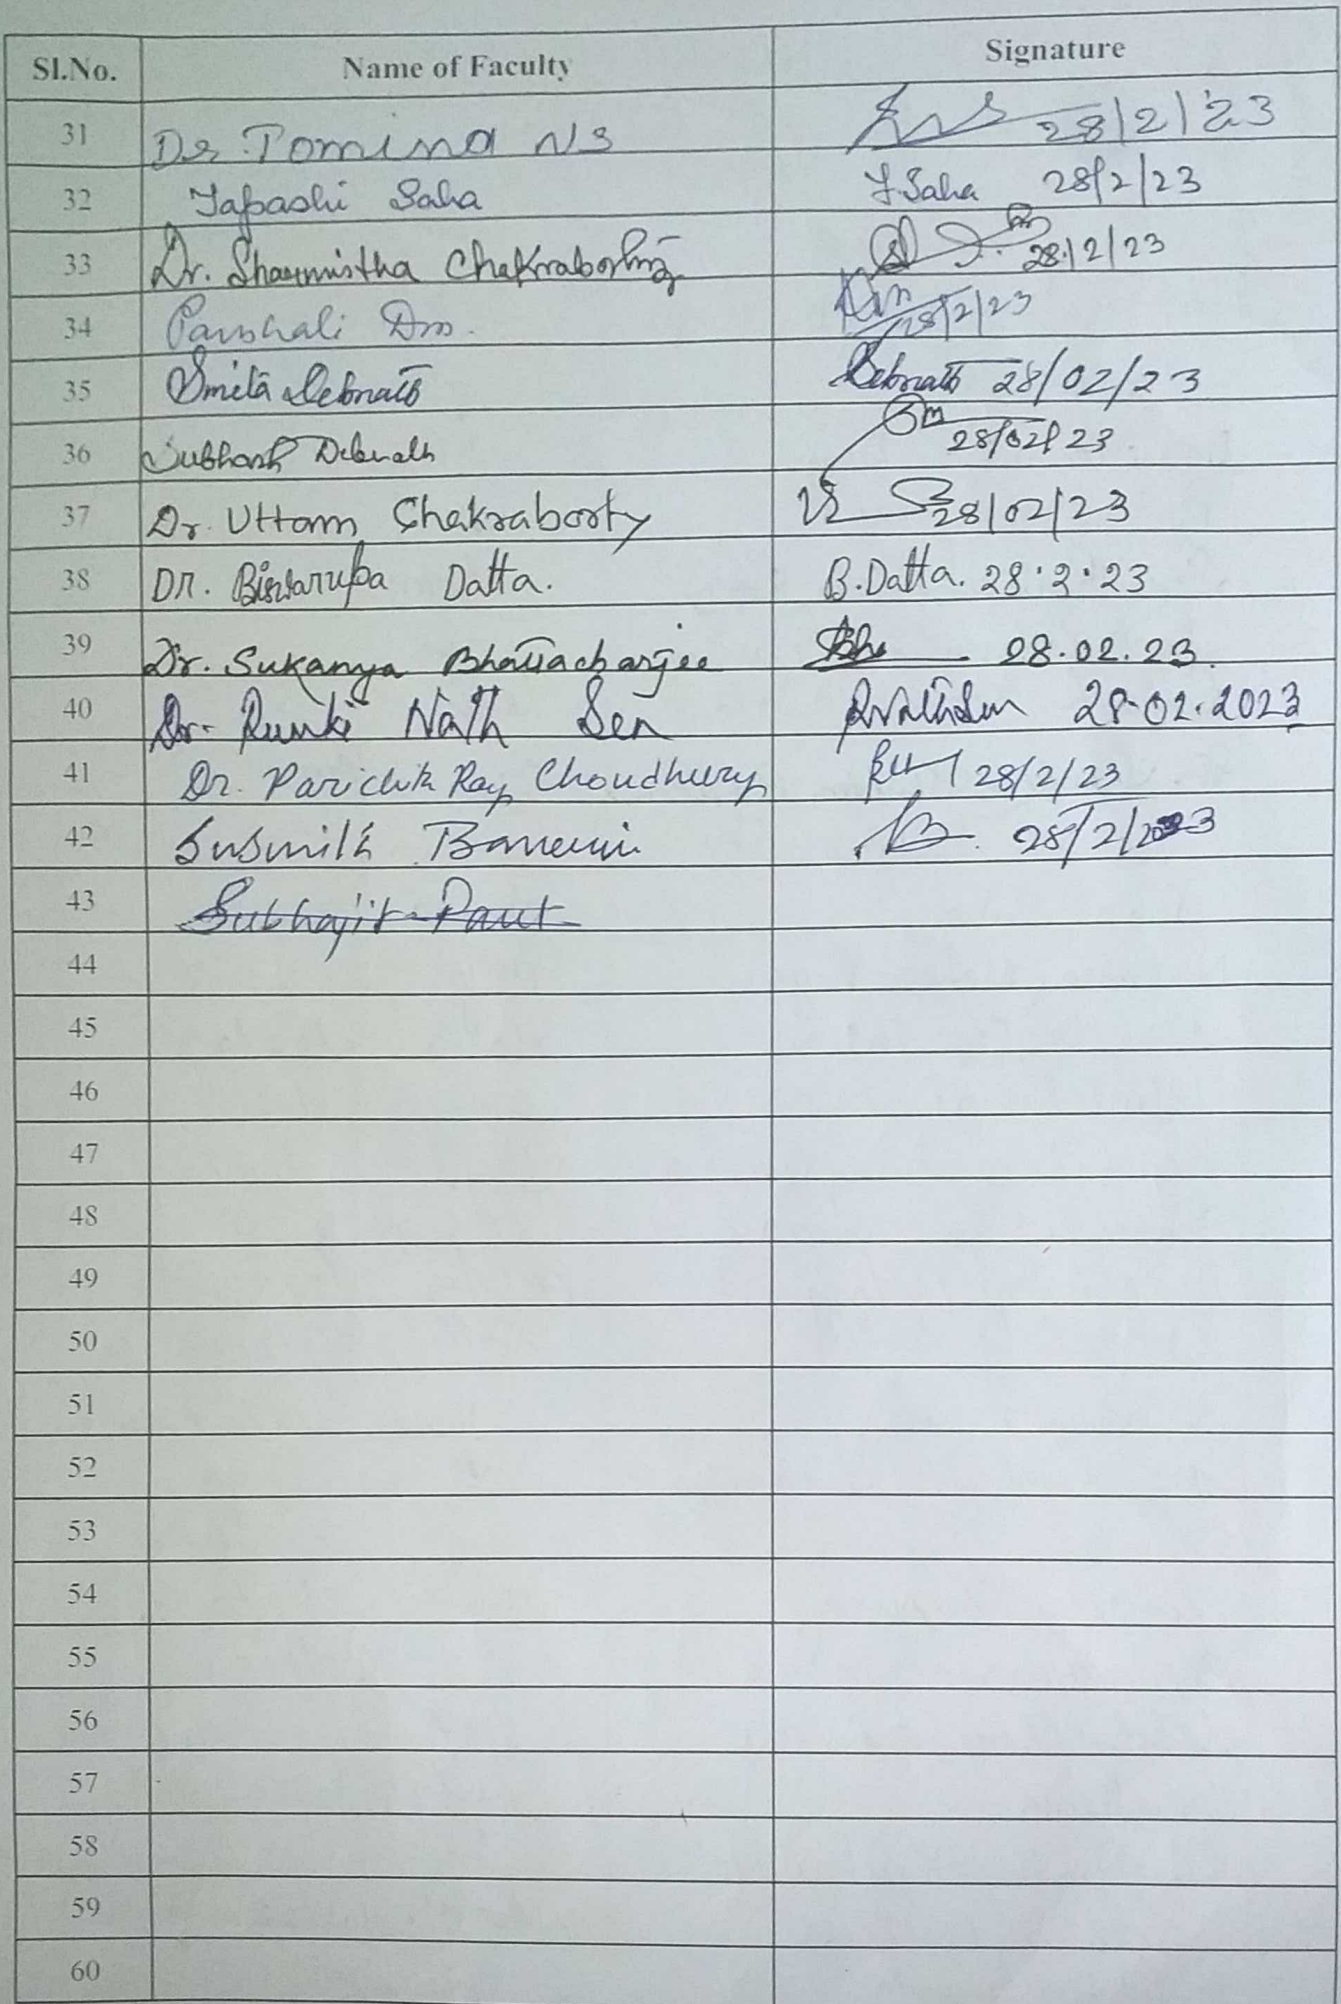 Sl.No. Name of Faculty Signature
31 Dr. Tomina NS 28/2/23
32 Tapashi Saha T. Saha 28/2/23
33 Dr. Sharmistha Chakraborty 28/2/23
34 28/2/23
35 Smita Debnath Debnath 28/02/23
36 Subhash Debnath 28/02/23
37 Dr. Uttam Chakraborty 28/02/23
38 DR. Biswarupa Datta. B. Datta. 28.2.23
39 Dr. Sukanya Bhattacharjee 28.02.23.
40 Dr. Runki Nath Sen 28-02.2023
41 Dr. Ray Choudhury 28/2/23
42 28/2/2023
43 Subhajit
44
45
46
47
48
49
50
51
52
53
54
55
56
57
58
59
60